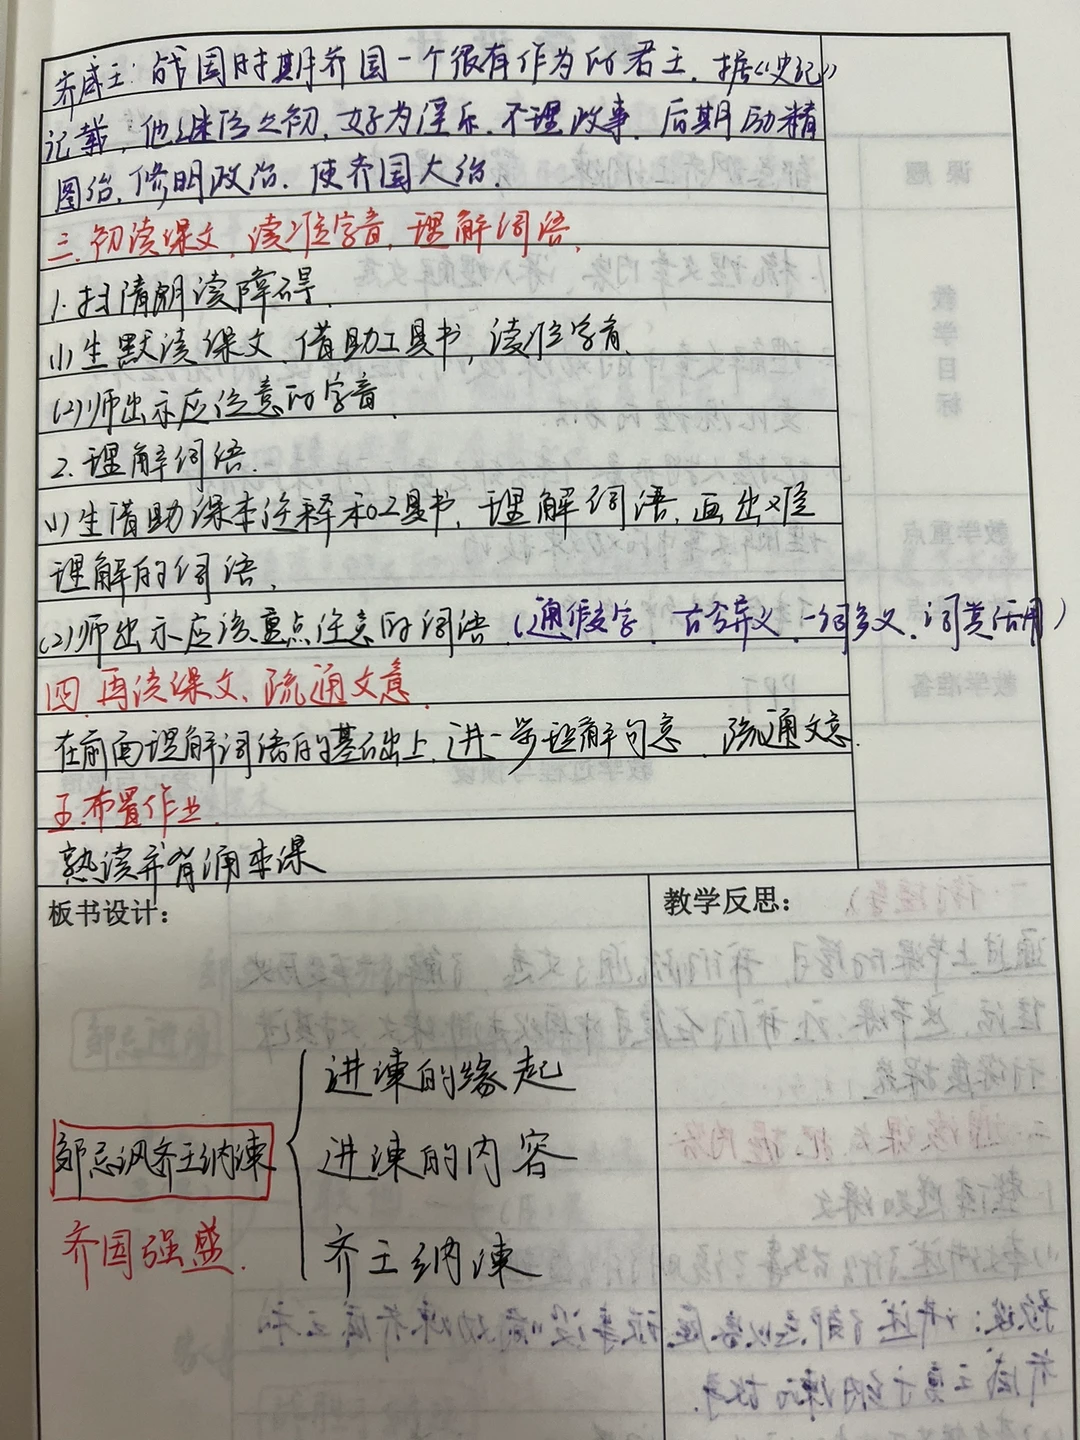 齐威王：战国时期齐国一个很有作为的君王．据《史记》
记载，他继位之初，好为淫乐．不理政事．后期励精
图治，修明政治．使齐国大治．
三．初读课文，读准字音，理解词语．
1．扫清朗读障碍．
(1)生默读课文、借助工具书，读准字音．
(2)师出示应注意的字音．
2．理解词语．
(1)生借助课本注释和工具书，理解词语，画出难
理解的词语．
(2)师出示应该重点注意的词语（通假字．古今异义．一词多义．词类活用）
四．再读课文、疏通文意．
在前面理解词语的基础上，进一步理解句意．疏通文意．
五．布置作业．
熟读并背诵本课
板书设计：
教学反思：
进谏的缘起
邹忌讽齐王纳谏
进谏的内容
齐国强盛．
齐王纳谏